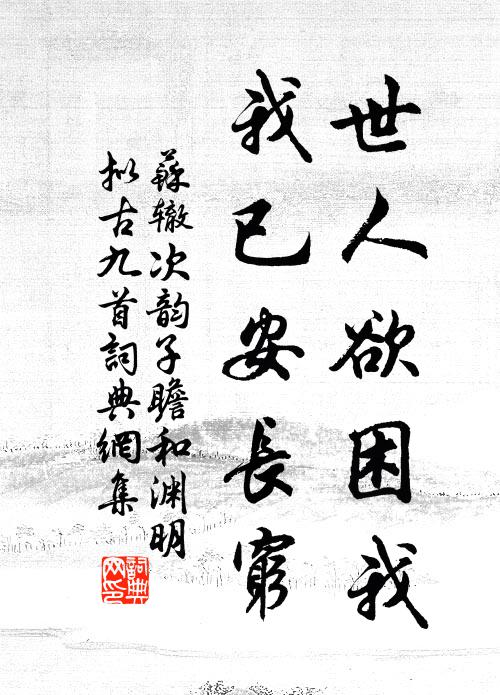 世人欲困我
我已安長窮
蘇辙次韵子瞻和渊明
拟古九首詞典網集
詞典
网印